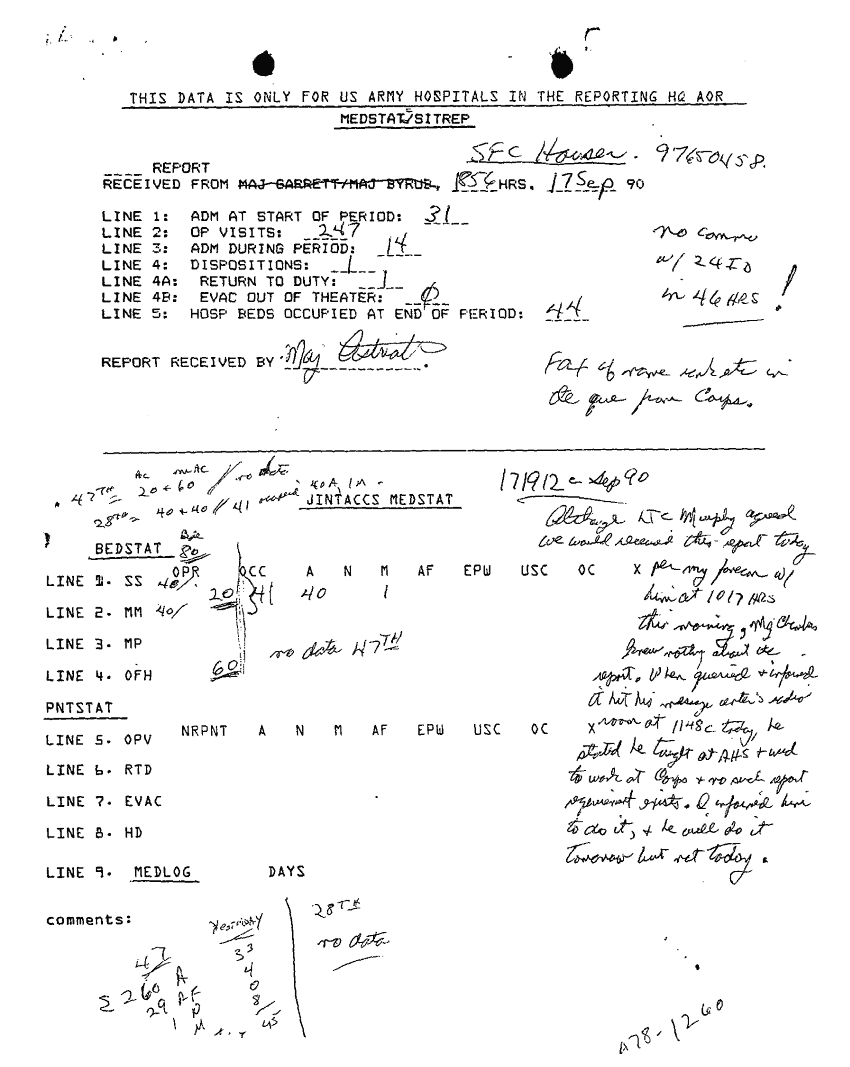 THIS DATA IS ONLY FOR US ARMY HOSPITALS IN THE REPORTING HQ AOR
MEDSTAT/SITREP
SFC Houser. 97650458.
____ REPORT
RECEIVED FROM MAJ GARRETT/MAJ BYRUB, 1856 HRS. 17 Sep 90
LINE 1: ADM AT START OF PERIOD: 31
LINE 2: OP VISITS: 247
LINE 3: ADM DURING PERIOD: 14
LINE 4: DISPOSITIONS: 1
LINE 4A: RETURN TO DUTY: 1
LINE 4B: EVAC OUT OF THEATER: 0
LINE 5: HOSP BEDS OCCUPIED AT END OF PERIOD: 44
no commo
w/ 24 ID
in 46 HRS !
REPORT RECEIVED BY Maj
Fax of name rank etc in
the que from Corps.
AC mAC
47TH = 20 + 60 // no data
28TH = 40 + 40 // 41 occupied 40A, 1M
JINTACCS MEDSTAT
171912 c Sep 90
BEDSTAT
80
OPR OCC A N M AF EPW USC OC X
LINE 1. SS 40/ 20 41 40 1
LINE 2. MM 40/
LINE 3. MP
no data 47TH
LINE 4. OFH 60
Although LTC Murphy agreed
we would received this report today
per my fonecon w/
him at 1017 HRS
this morning, Maj Charles
knew nothing about the
report. When queried + informed
it hit his message center's radio
room at 1148c today, he
stated he taught at AHS + used
to work at Corps + no such report
requirement exists. I informed him
to do it, + he will do it
tomorrow but not today.
PNTSTAT
NRPNT A N M AF EPW USC OC X
LINE 5. OPV
LINE 6. RTD
LINE 7. EVAC
LINE 8. HD
LINE 9. MEDLOG DAYS
comments:
Yesterday
47
Σ 260 A 33
29 AF 4
1 N 0
M 8
45
28TH
no data
A78-1260